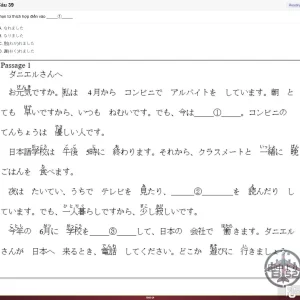 Câu 39
Chọn từ thích hợp điền vào _____①_____.
A. なれました
B. なりました
Passage 1
ダニエルさんへ
お元気ですか。私は 4月から コンビニで アルバイトを しています。朝 と
ても 早いですから、いつも ねむいです。でも、今は_____①_____。コンビニの
てんちょうは 優しい人です。
日本語学校は 午後 5時に 終わります。それから、クラスメートと 一緒に 晩
ごはんを 食べます。
夜は たいてい、うちで テレビを 見たり、_____②_____を 読んだり し
ています。でも、一人暮らしですから、少し寂しいです。
今年の 6月に 学校を_____③_____して、日本の 会社で 働きます。ダニエル
さんが 日本へ 来るとき、電話 してください。どこか 遊びに 行きましょう。